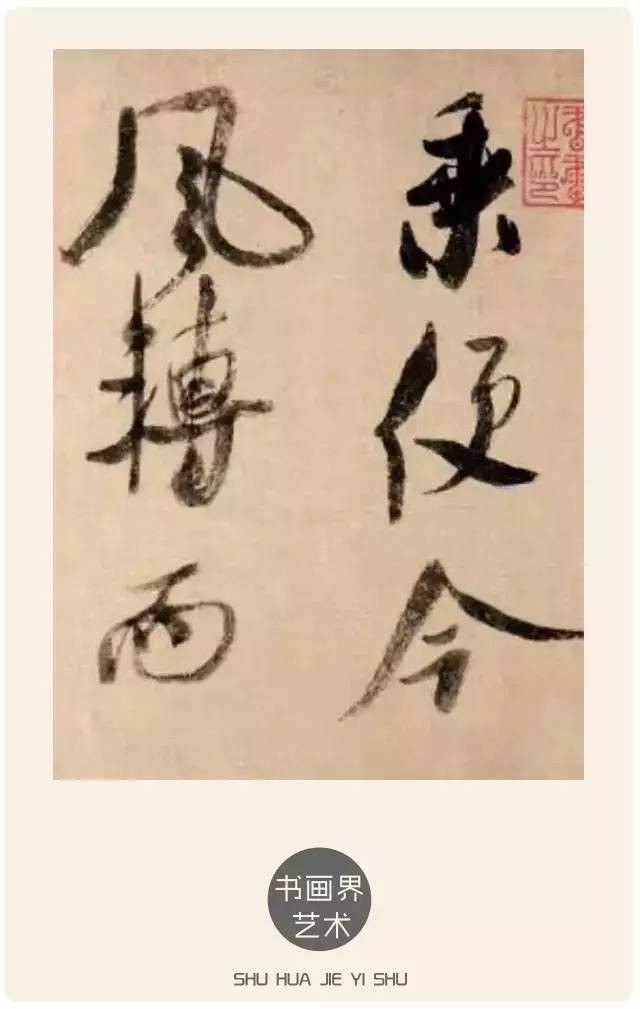 乗便今
風轉而
书画界
艺术
SHU HUA JIE YI SHU